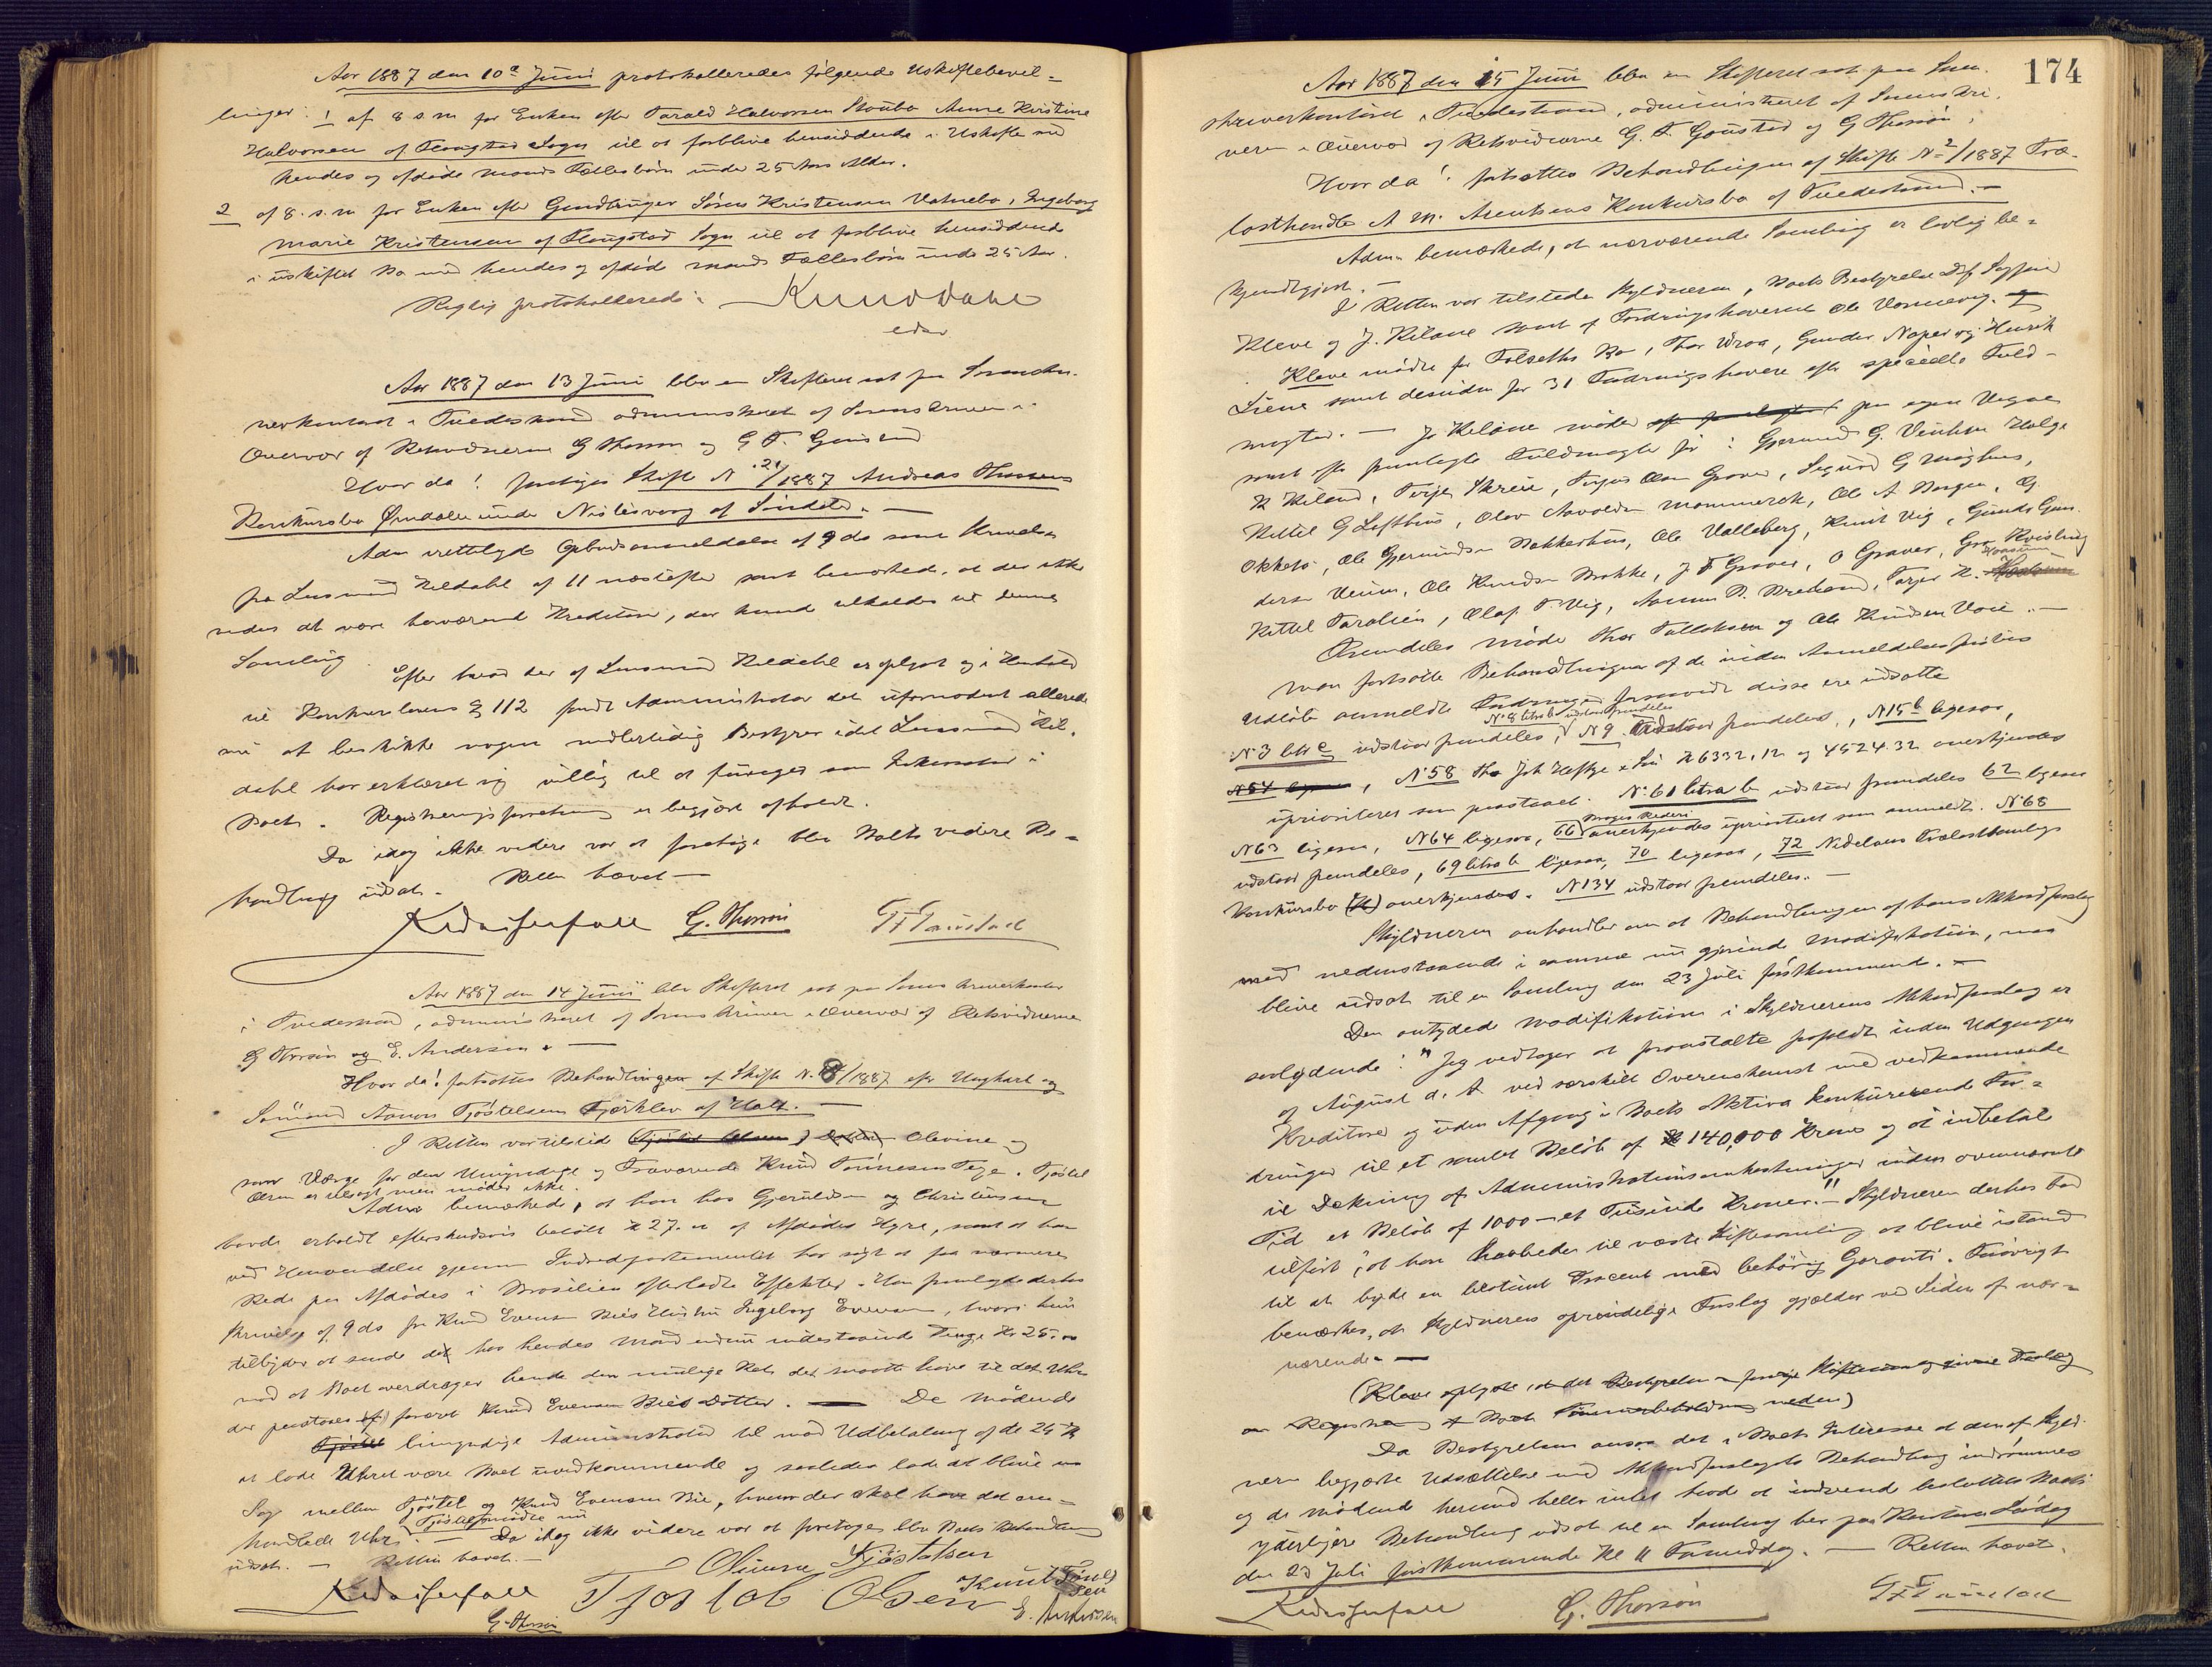 Aar 1887 den 10de Juni protokolleredes følgende Uskiftebevil-
linger: 1 af 8 d.m for Enken efter Tarald Halvorsen Stoubø Anne Kristine
Halvorsen af Flougstad Sogn til at forblive hensiddende i Uskifte med
hendes og afdøde Mands Fællesbørn under 25 Aars Alder.
2 af 8. d.m for Enken efter Gaardbruger Søren Kristensen Vatnebø, Ingeborg
Marie Kristensen af Flougstad Sogn til at forblive hensiddende
i uskiftet Bo med hendes og afdøde Mands Fællesbørn under 25 Aar.
Rigtig protokolleret:
Knud Dahl
edsv
Aar 1887 den 13 Juni blev en Skifteret sat paa Sorenskri-
verkontoret i Tvedestrand administreret af Sorenskriveren i
Overvær af Retsvidnerne G Thorsøn og G F. Goustad
Hvor da! foretoges Skifte N. 21/1887 Andreas
Konkursbo Ørndalen under Næs af Søndeled. —
Adm fremlagde Opbudsanmeldelse af 9 ds samt Skrivelse
fra Lensmand Kildahl af 11 næstefter samt bemærkede, at der ikke
vides at være herværende Kreditorer, der kunde tilkaldes til denne
Samling.
Efter hvad der af Lensmand Kildahl er oplyst og i Henhold
til Konkurslovens § 112 fandt Administrator det ufornødent allerede
nu at beskikke nogen midlertidig Bestyrer idet Lensmand Kil-
dahl har erklæret sig villig til at fungere som Inkassator i
Boet. Registreringsforretning er begjært afholdt.
Da idag ikke videre var at foretage blev Boets videre Be-
handling udsat. Retten hævet —
G. Thorsøn G F Goustad
Aar 1887 den 14 Juni blev Skifteret sat paa Sorenskriverkontoret
i Tvedestrand, administreret af Sorenskriveren i Overvær af Retsvidnerne
G Thorsøn og E. Andersen. —
Hvor da! fortsattes Behandlingen af Skifte N. 8/1887 efter Ungkarl og
Sømand Aanon Tjøstelsen Tjærklev af Holt. —
I Retten var tilstede Olevine og
som Værge for den Umyndige og Fraværende Knud Tønnesen Tege. Tjøstel
Olsen er tilsagt men møder ikke.
Adm bemærkede, at han hos Gjeruldsen og Christensen
havde erholdt efterskudsvis betalt K 27. af Afdødes Hyre, samt at han
ved Henvendelse gjennem Indredepartementet har søgt at faa nærmere
Rede paa Afdødes i Brasilien efterladte Effekter. Han fremlagde derhos
Skrivelse af 9 ds fra Knud Evensen Bies Hustru Ingeborg Evensen, hvori hun
tilbyder at sende det hos hendes Mand endnu indestaaende Penge Kr 25.
mod at Boet overdrager hende den mulige Ret det maatte have til det Uhr
der paastaaes foræret Knud Evensen Bies Datter. — De Mødende
bemyndige Administrator til mod Udbetaling af de 25 K
at lade Uhret være Boet uvedkommende og saaledes lade det blive en
Sag mellem Tjøstel og Knud Evensen Bie, hvem der skal have det om-
handlede Uhr. — Da idag ikke videre var at foretages blev Boets Behandling
Tjøstel mødte nu
udsat. — Retten hævet. —
Olevine Tjøstelsen
Tjøstel Olsen Knut Tønnessen
G. Thorsøn E. Andersen
174
Aar 1887 den 15 Juni blev en Skifteret sat paa Soren-
skriverkontoret i Tvedestrand, administreret af Sorenskri-
veren i Overvær af Retsvidnerne G. F. Goustad og G Thorsøn.
Hvor da! fortsattes Behandlingen af Skifte No 2/1887 Træ-
lasthandler A M. Arentsens Konkursbo af Tvedestrand. —
Adm bemærkede, at nærværende Samling er lovlig be-
kjendtgjort. —
I Retten var tilstede Skyldneren, Boets Bestyrelse Sagfører
Kleve og J. Kiland samt af Fordringshaverne Ole Vormevig.
Kleve mødte for Tolseths Bo, Thor Wraa, Gunder Naper og Henrik
Liene samt desuden for 31 Fordringshavere efter specielle Fuld-
magter. — J. Kiland møder paa egne Vegne
samt efter fremlagte Fuldmagter for: Gjermund G. Helge
K Kiland, Terje Skreie, Torjus Olsen Graver, Sigurd G Moghus,
Kittil G Lofthus, Olav Aavoldsen Mommerek, Ole A Borgen, G.
Okkelø, Ole Gjermundsen Bakkerhus, Ole Valleberg, Knut Vig, Gunder Gun-
dersen Veum, Ole Knudsen Brokke, J T Graver, O Graver, Gro Kvisling
Kittel Taralsen, Olaf T. Vig, Aanon P. Breland, Torger K.
Fremdeles møder Thor Tallaksen og Ole Knudsen Voie. —
Man fortsatte Behandlingen af de inden Anmeldelsesfristens
Udløb anmeldte Fordringer forsaavidt disse ere udsatte
N 8 litra b udstaar fremdeles
N 3 litr c udstaar fremdeles, N 9 udstaar fremdeles, N 15 b ligesaa,
N 54 , N 58 Joh Heftye & Søn K 6332,12 og 4524.32 anerkjendes
uprioriteret som paastaaet. N. 61 litra b udstaar fremdeles 62 ligesaa
N 63 ligesaa, N 64 ligesaa, 66 anerkjendes uprioritert som anmeldt. N 68
udstaar fremdeles, 69 litra b ligesaa, 70 ligesaa, 72 Nidelvens Trælasthandlers
Konkursbo anerkjendes. N 134 udstaar fremdeles. —
Skyldneren anholdt om at Behandlingen af hans Akkordforslag
med nedenstaaende i samme nu gjorte Modifikation, maa
blive udsat til en Samling den 23 Juli førstkommende. —
Den antydede Modifikation i Skyldnerens Akkordforslag er
saalydende: "Jeg vedtager at foranstalte frafaldt inden Udgangen
af August d. A ved særskilt Overenskomst med vedkommende
Kreditorer og uden Afgang i Boets Aktiva konkurrerende For-
dringer til et samlet Beløb af 140,000 Kroner og at indbetale
til Dækning af Administrationsomkostninger inden ovennævnte
Tid et Beløb af 1000 — et Tusinde Kroner." — Skyldneren derhos bad
tilført, at han haaber til næste Skiftesamling at blive istand
til at byde en bestemt Procent med behørig Garanti. Forøvrigt
bemærkes, at Skyldnerens oprindelige Forslag gjælder ved Siden af nær-
værende. —
(Kleve oplyste, at det Bestyrelsen i forrige Skiftesamling givne Forslag
om Registrering af Boets Tømmerbeholdning neden)
Da Bestyrelsen ansaa det i Boets Interesse at den af Skyld-
neren begjærte Udsættelse med Akkordforslagets Behandling indrømmes
og de Mødende herimod heller intet havde at indvende besluttedes Boets
yderligere Behandling udsat til en Samling her paa Kontoret Lørdag
den 23 Juli førstkommende Kl 11 Formiddag. — Retten hævet.
G. Thorsøn G F Goustad